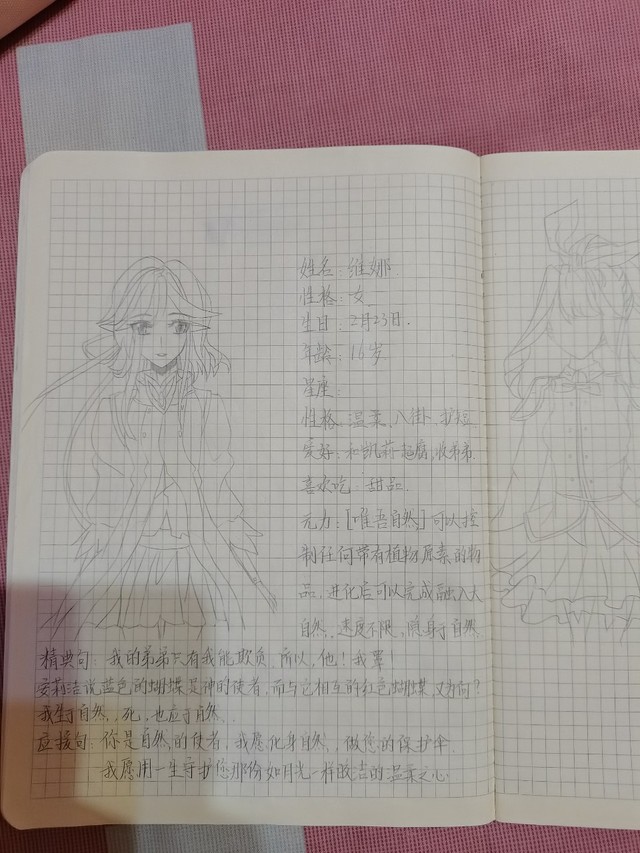 姓名：维娜
性格：女
生日：2月23日.
年龄：16岁
星座：
性格：温柔、八卦、护短
爱好：和凯莉起腐，收弟弟
喜欢吃：甜品
元力：[唯吾自然]可以控
制任何带有植物原素的物
品，进化后可以完成融入大
自然，速度不限，隐身于自然
精典句：我的弟弟只有我能欺负，所以，他！我罩！
安莉洁说蓝色的蝴蝶是神的使者，而与它相互的红色蝴蝶又为何？
我生于自然，死，也应于自然.
应接句：你是自然的使者，我愿化身自然，做您的保护伞.
我愿用一生守护您那份如月光一样皎洁的温柔之心